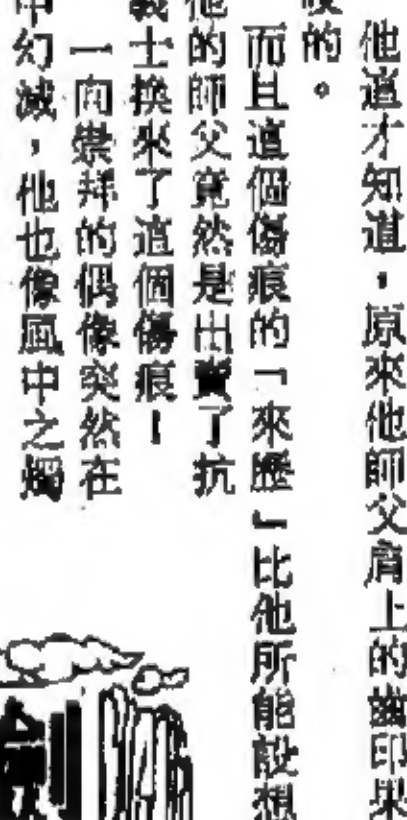 他這才知道，原來他師父肩上的齒印果
的。
而且這個傷痕的「來歷」比他所能設想
他的師父竟然是出賣了抗
義士換來了這個傷痕！
一向崇拜的偶像突然在
中幻滅，他也像風中之燭
劍